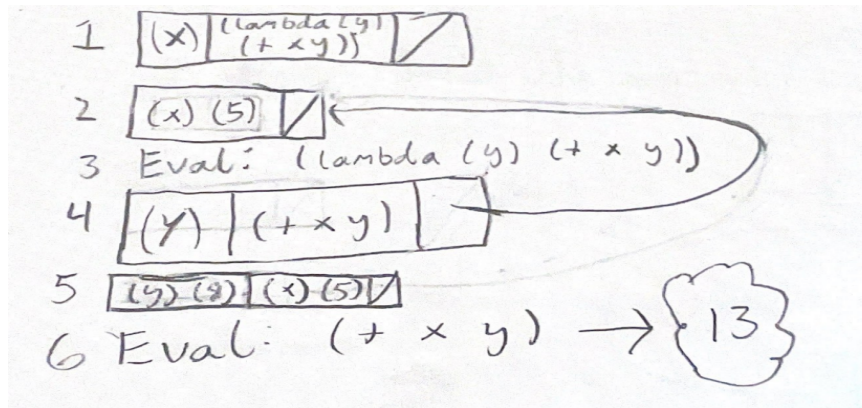 1 (x) (lambda (y) (+ x y))
2 (x) (5)
3 Eval: (lambda (y) (+ x y))
4 (y) (+ x y)
5 (y) (8) (x) (5)
6 Eval: (+ x y) → 13